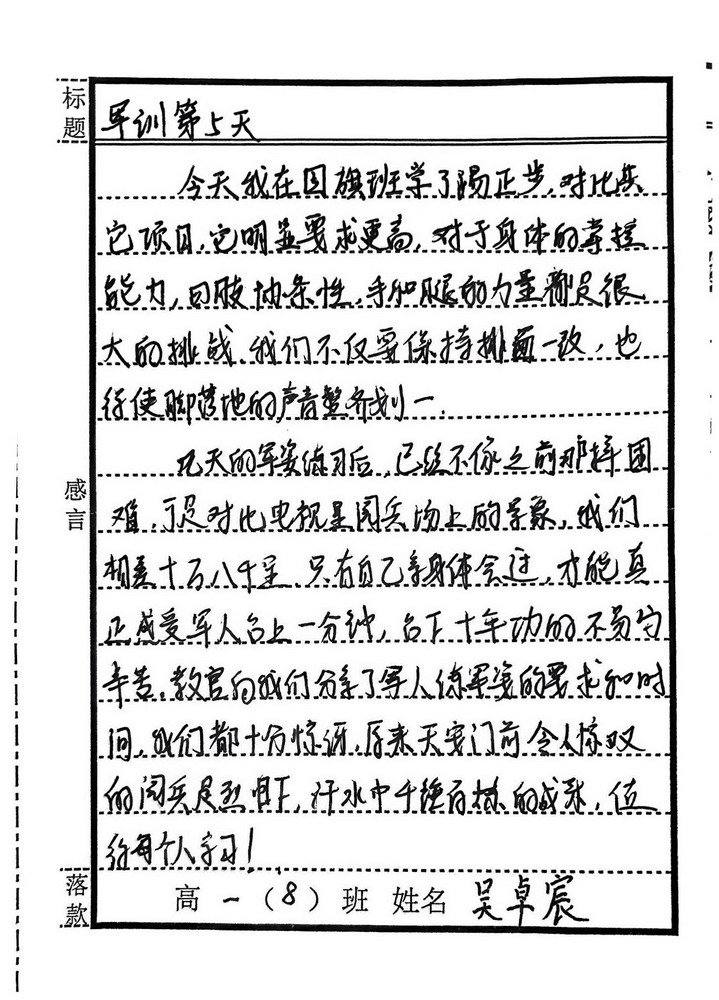 标题
军训第5天
今天我在国旗班学了踢正步,对比其
它项目,它明显要求更高,对于身体的掌控
能力,四肢协条性,手和腿的力量都是很
大的挑战.我们不仅要保持排面一致,也
得使脚落地的声音整齐划一.
感言
几天的军姿练习后,已经不像之前那样困
难,于是对比电视里阅兵场上的景象,我们
相差十万八千里.只有自己亲身体会过,才能真
正感受军人台上一分钟,台下十年功的不易与
辛苦.教官向我们分享了军人练军姿的要求和时
间,我们都十分惊讶,原来天安门前令人惊叹
的阅兵是烈日下,汗水中千锤百炼的成就,值
得每个人学习!
落款
高一(8)班 姓名 吴卓宸